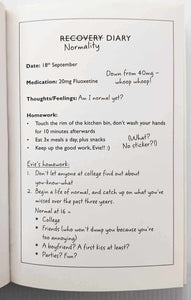 RECOVERY DIARY
Normality
Date: 18th September
Medication: 20mg Fluoxetine
Down from 40mg –
whoop whoop!
Thoughts/Feelings: Am I normal yet?
Homework:
• Touch the rim of the kitchen bin, don't wash your hands
for 10 minutes afterwards
• Eat 2x meals a day, plus snacks
• Keep up the good work, Evie!! :)
(What?
No sticker?!)
Evie's homework:
1. Don't let anyone at college find out about
you-know-what
2. Begin a life of normal, and catch up on what you've
missed over the past three years.
Normal at 16 =
• College
• Friends (who won't dump you because you're
too annoying)
• A boyfriend? A first kiss at least?
• Parties? Fun?